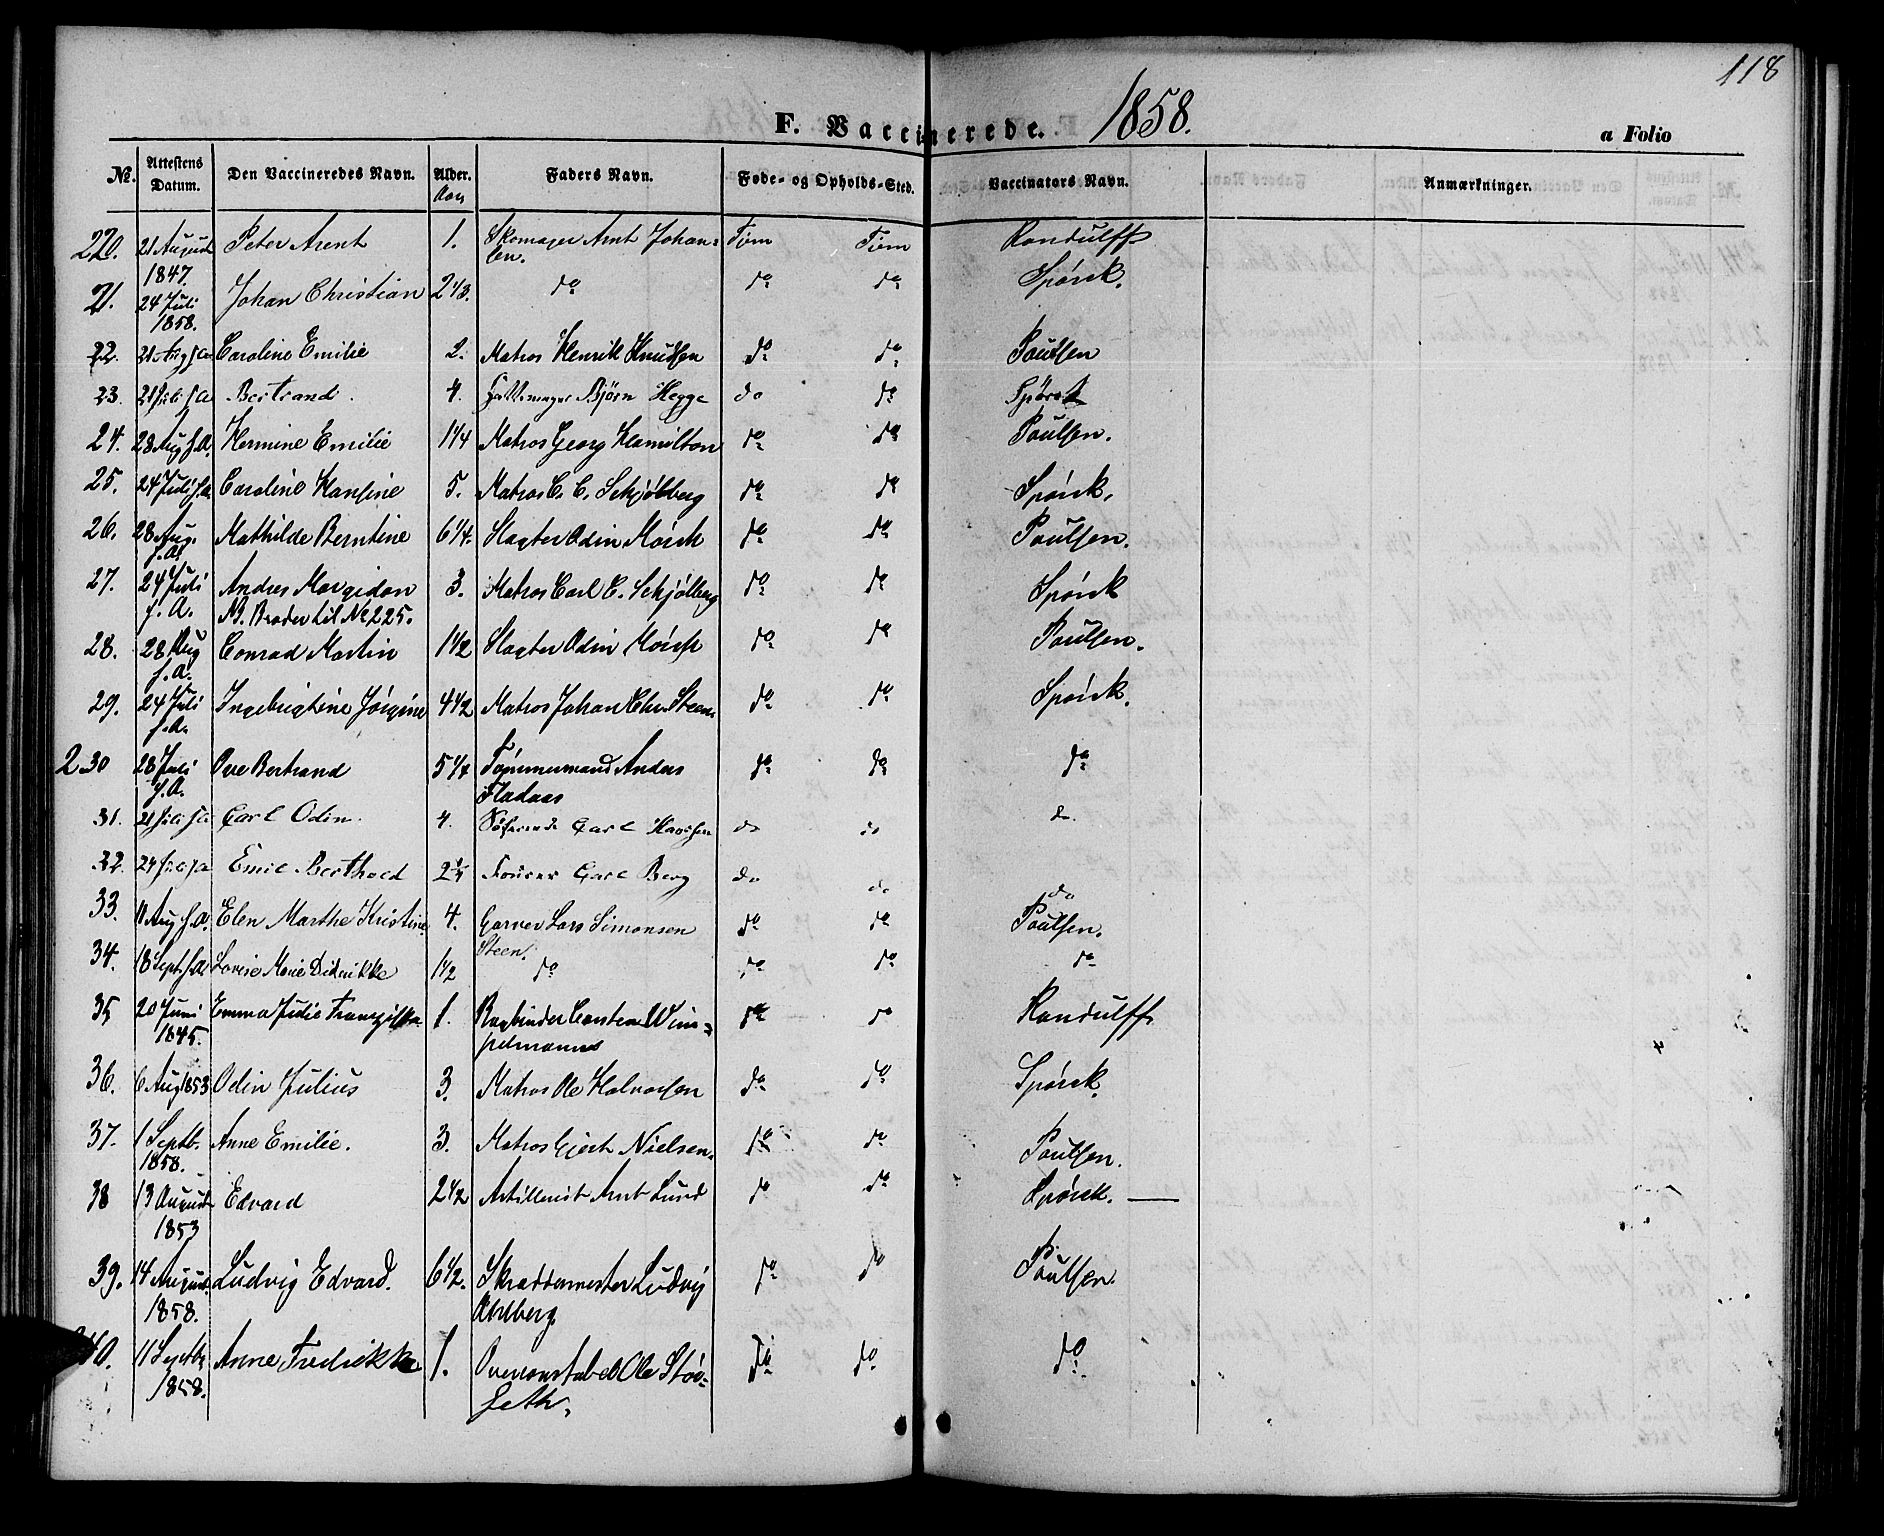 118
F. Vaccinerede. 1858.
a Folio
No. Attestens Datum. Den Vaccineredes Navn. Alder. Aar Faders Navn. Føde- og Opholds-Sted. Vaccinators Navn. Anmærkninger.
220. 21 August 1847. Peter Arent 1. Skomager Arnt Johan-sen. Tr:hm Tr:hm Randulff
21. 24 Juli 1858. Johan Christian 2 1/3. do do do Spörck.
22. 21 Aug f a Caroline Emilie 2. Matros Henrik Knudsen do do Poulsen
23. 21 Juli f a Bertrand. 4. Bjørn Hegge do do Spörck
24. 28 Aug f. A. Hermine Emilie 1 1/4 Matros Georg Hamilton do do Poulsen.
25. 24 Juli f. A. Caroline Hansine 5. Matros C. C. Schjølberg do do Spörck.
26. 28 Aug. f. A. Mathilde Berntine 6 1/4. Slagter Odin Mørch do do Poulsen.
27. 24 Juli f. A. Andres Margidon 3. Matros Carl C. Schjølberg do do Spörck
NB. Broder til No 225.
28. 28 Aug f. A. Conrad Martin 1 1/2 Slagter Odin Mørch do do Poulsen.
29. 24 Juli f. A. Ingebrigtine Jørgine 4 1/2 Matros Johan Chr. Steen. do do Spörck.
230 28 Juli f. A. Ove Bertrand 5 1/4 Tømmermand Anders Fladaas do do do
31. 21 Juli f a Carl Odin. 4. Carl do do do.
32. 24 Juli f a Emil Berthold 2 1/4 Fourer Carl Berg do do do
33. 11 Aug f. A. Elen Marthe Kristine. 4. Garver Lars Simonsen Steen. do do Poulsen.
34. 18 Sept. f. A. Lovise Marie Didrikke 1 1/2 do do do do
35 20 Juni 1845. Emma Julie Franziska 1. Bogbinder Carsten Wim-pelmanns do do Randulff
36. 6 Aug 1853 Odin Julius 3. Matros Ole Halvorsen do do Spörck.
37. 1 Septb. 1858. Anne Emilie. 3. Matros Gjert Nielsen. do do Poulsen.
38 13 August 1853 Edvard 2 1/2 Artillerist Arnt Lund do do Spörck.
39. 14 August. 1858. Ludvig Edvard. 6 1/2. Skraddermester Ludvig Ahlberg. do do Poulsen.
240. 11 Septb. 1858. Anne Fredrikke 1. Overconstabel Ole Stør-seth. do do do